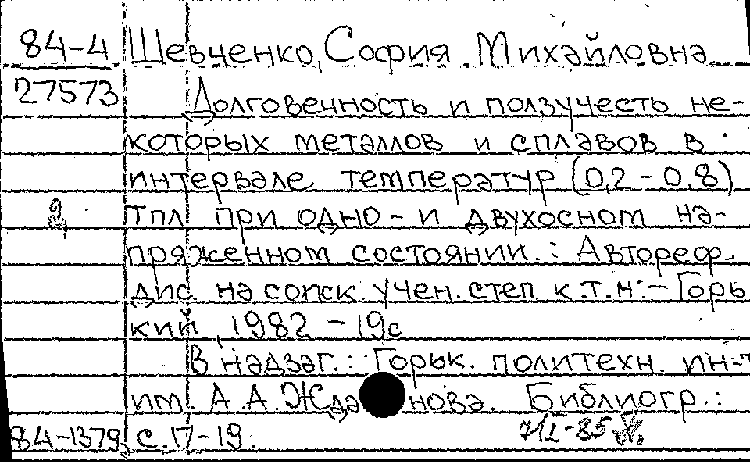 84-4 Шевченко, София Михайловна
27573 Долговечность и ползучесть не-
которых металлов и сплавов в
интервале температур (0,2-0,8)
Тпл при одно- и двухосном на-
пряженном состоянии.: Автореф.
дис. на соиск. учен. степ к.т.н.- Горь
кий, 1982 - 19с
В надзаг.: Горьк. политехн. ин-т
им. А.А. Жданова. Библиогр.:
84-1379 с.17-19.